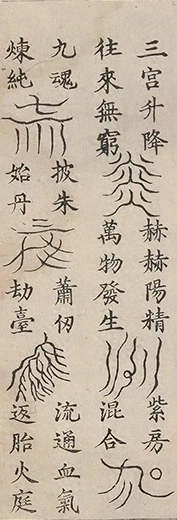 三宮升降
往來無窮
赫赫陽精
萬物發生
紫房
混合
九魂
煉純
披朱
始丹
蕭仞
劫臺
流通血氣
返胎火庭